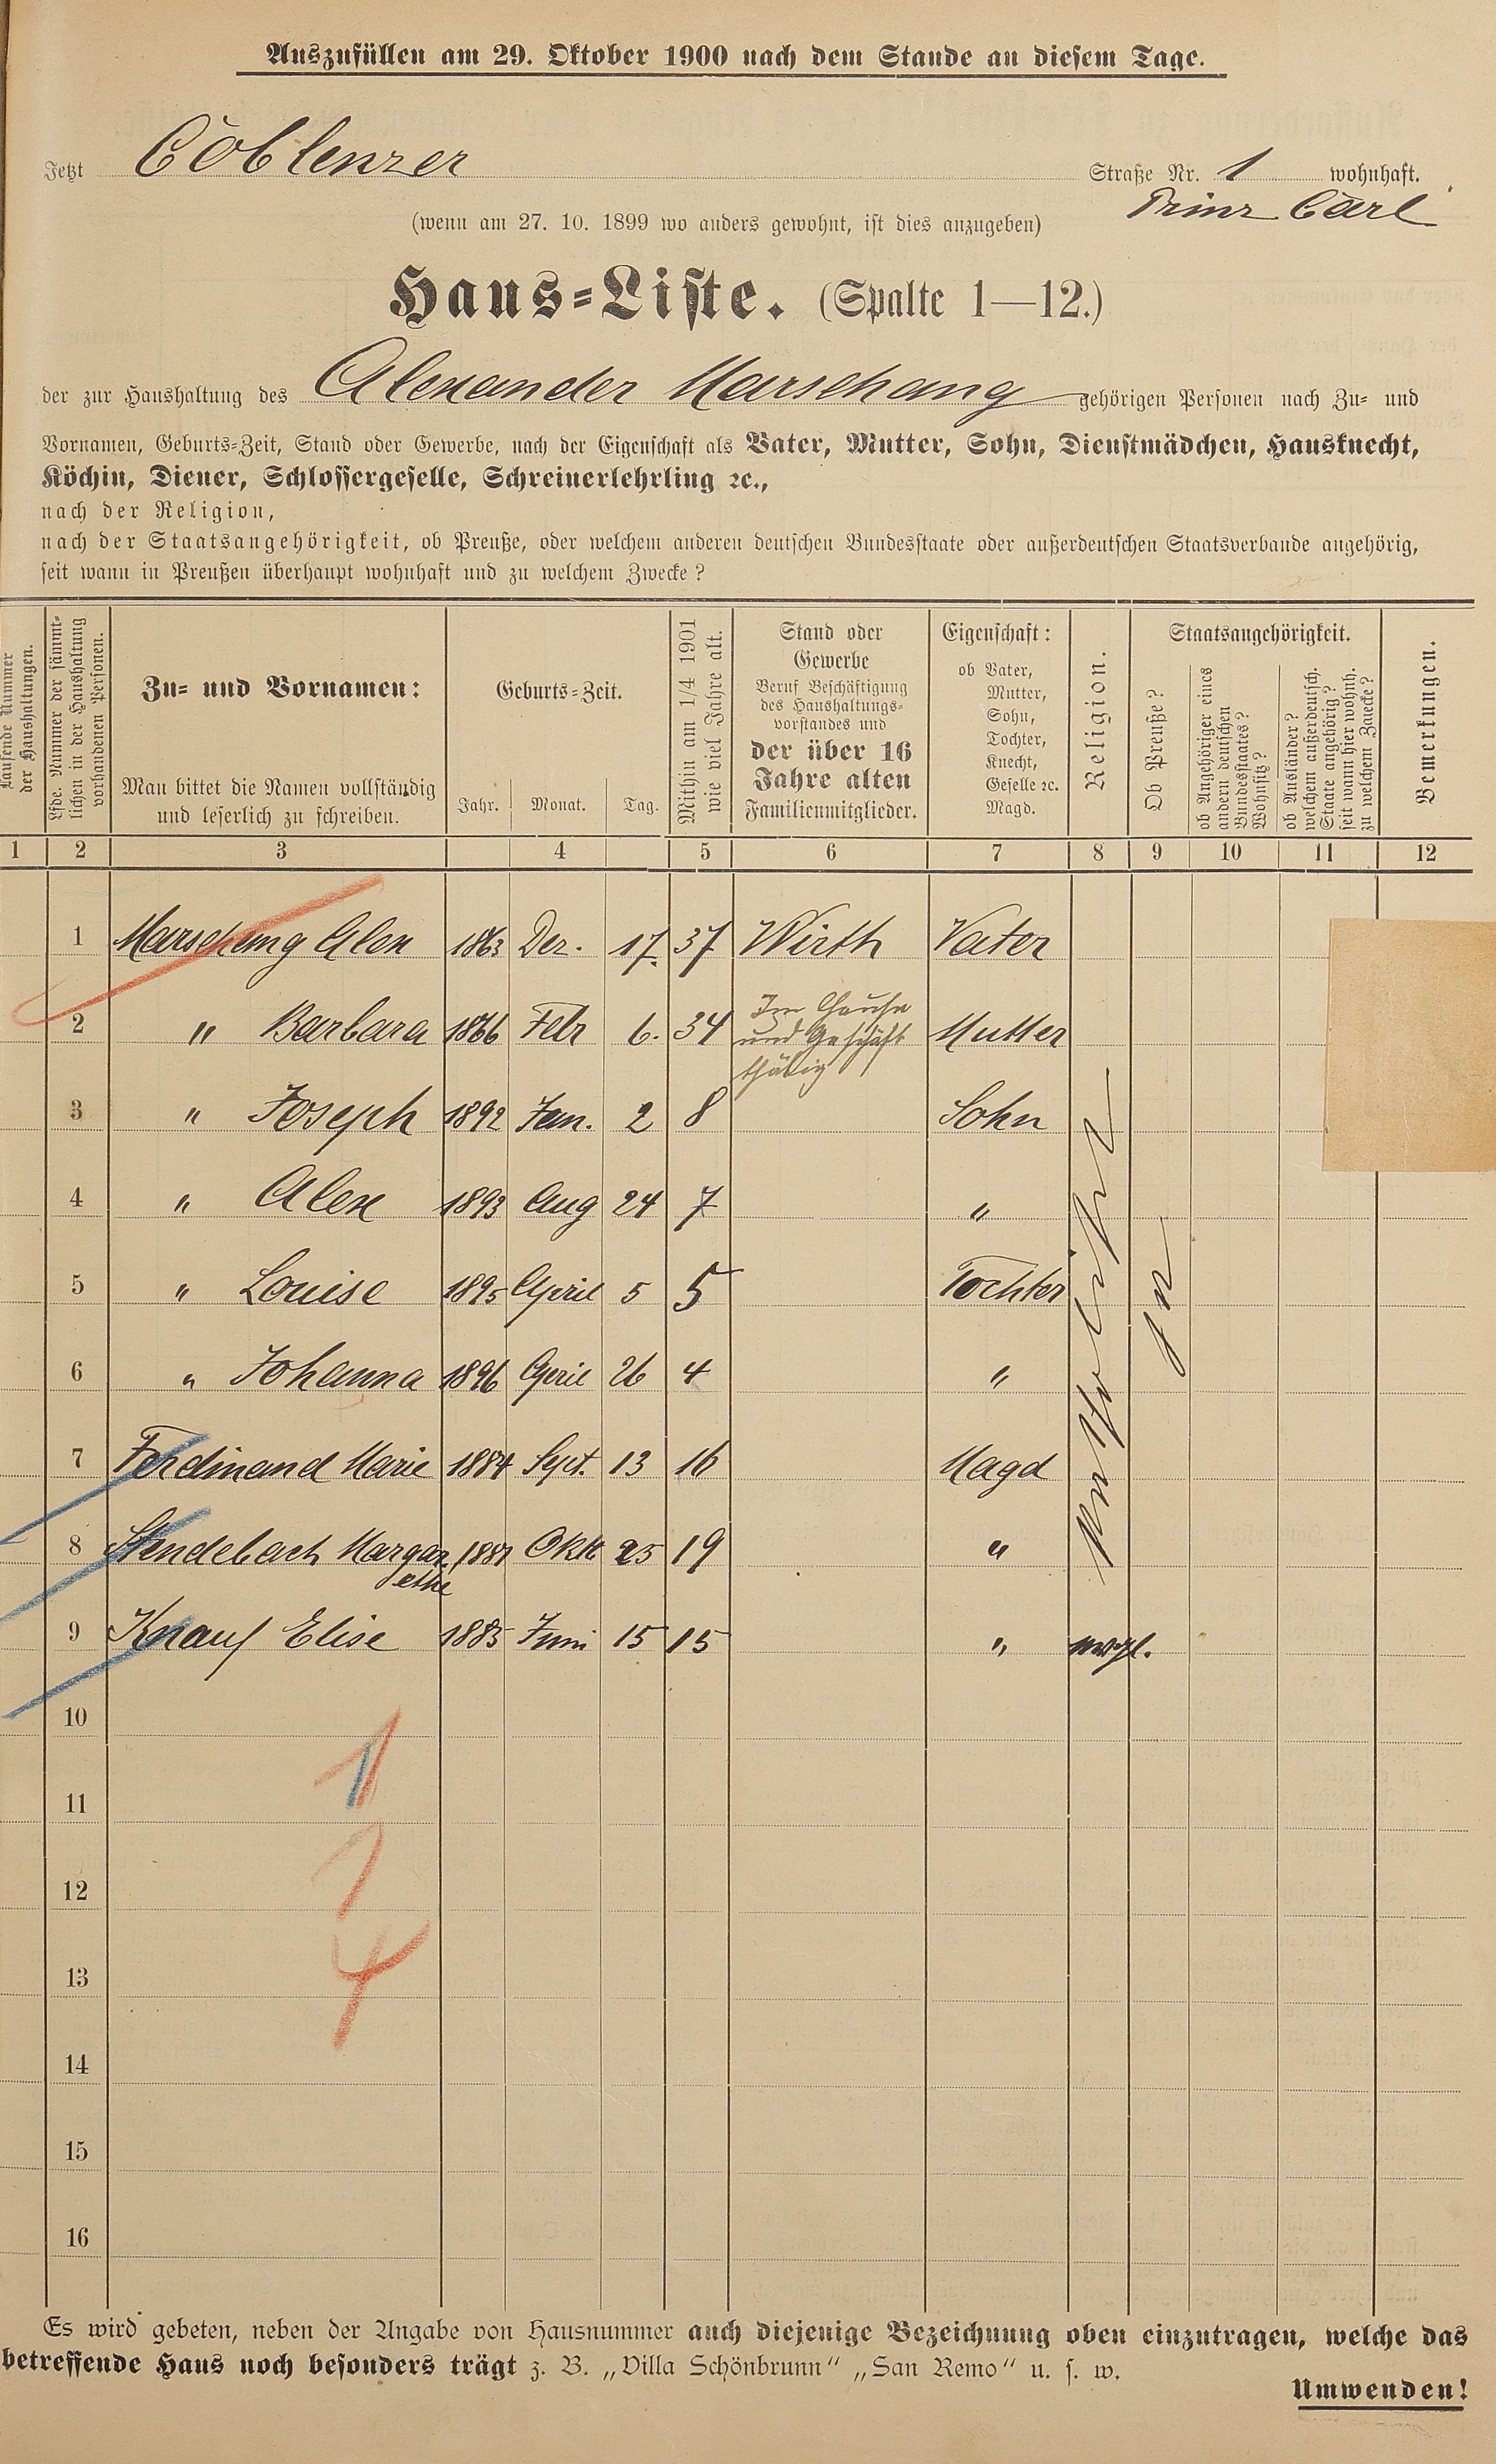 Auszufüllen am 29. Oktober 1900 nach dem Stande an diesem Tage.
Jetzt Coblenzer Straße Nr. 1 wohnhaft.
Prinz Carl
(wenn am 27. 10. 1899 wo anders gewohnt, ist dies anzugeben)
Haus-Liste. (Spalte 1—12.)
der zur Haushaltung des Alexander Marschang gehörigen Personen nach Zu- und
Vornamen, Geburts-Zeit, Stand oder Gewerbe, nach der Eigenschaft als Vater, Mutter, Sohn, Dienstmädchen, Hausknecht,
Köchin, Diener, Schlossergeselle, Schreinerlehrling ꝛc.,
nach der Religion,
nach der Staatsangehörigkeit, ob Preuße, oder welchem anderen deutschen Bundesstaate oder außerdeutschen Staatsverbande angehörig,
seit wann in Preußen überhaupt wohnhaft und zu welchem Zwecke?
Laufende Nummer
der Haushaltungen.
Lfde. Nummer der sämmt-
lichen in der Haushaltung
vorhandenen Personen.
Zu- und Vornamen:
Man bittet die Namen vollständig
und leserlich zu schreiben.
Geburts-Zeit.
Jahr. Monat. Tag.
Mithin am 1/4 1901
wie viel Jahre alt.
Stand oder
Gewerbe
Beruf Beschäftigung
des Haushaltungs-
vorstandes und
der über 16
Jahre alten
Familienmitglieder.
Eigenschaft:
ob Vater,
Mutter,
Sohn,
Tochter,
Knecht,
Geselle ꝛc.
Magd.
Religion.
Staatsangehörigkeit.
Ob Preuße?
ob Angehöriger eines
andern deutschen
Bundesstaates?
Wohnsitz?
ob Ausländer?
welchem außerdeutsch.
Staate angehörig?
seit wann hier wohnh.
zu welchem Zwecke?
Bemerkungen.
1 2 3 4 5 6 7 8 9 10 11 12
1 Marschang Alex 1863 Dez. 17. 37 Wirth Vater
2 " Barbara 1866 Febr 6. 34 Im Hause und Geschäft thätig Mutter
3 " Joseph 1892 Jan. 2 8 Sohn
4 " Alex 1893 Aug 24 7 "
5 " Louise 1895 April 5 5 Tochter
6 " Johanna 1896 April 26 4 "
7 Ferdinand Marie 1884 Sept. 13 16 Magd
8 Stendebach Margarethe 1881 Okt 25 19 "
9 Knauf Elise 1885 Juni 15 15 " evgl.
ja
10
1
11
12
1
13
4
14
15
16
Es wird gebeten, neben der Angabe von Hausnummer auch diejenige Bezeichnung oben einzutragen, welche das
betreffende Haus noch besonders trägt z. B. „Villa Schönbrunn“ „San Remo“ u. s. w.
Umwenden!